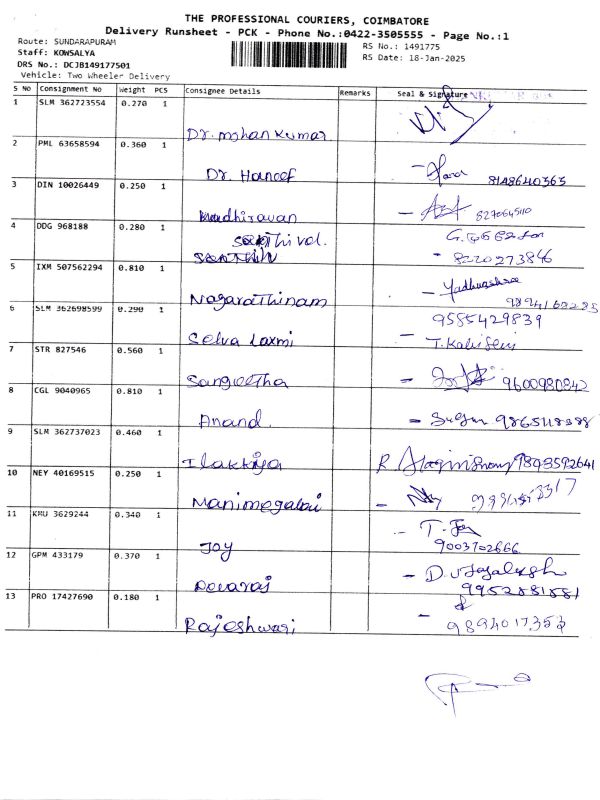 THE PROFESSIONAL COURIERS, COIMBATORE
Delivery Runsheet - PCK - Phone No.:0422-3505555 - Page No.:1
Route: SUNDARAPURAM
Staff: KOWSALYA
DRS No.: DCJB149177501
Vehicle: Two Wheeler Delivery
RS No.: 1491775
RS Date: 18-Jan-2025
S No Consignment No Weight PCS Consignee Details Remarks Seal & Signature
1 SLM 362723554 0.270 1
Dr. mohan kumar
2 PML 63658594 0.360 1
Dr. Haneef 8148640363
3 DIN 10026449 0.250 1
Madhiravan
4 DDG 968188 0.280 1
Sakthivel. 8220273846
5 IXM 507562294 0.810 1
Nagarathinam
6 SLM 362698599 0.290 1 9585429839
Selva Laxmi
7 STR 827546 0.560 1
Sangeetha 9600980842
8 CGL 9040965 0.810 1
Anand.
9 SLM 362737023 0.460 1
Ilakkiya
10 NEY 40169515 0.250 1
Manimegalai
11 KRU 3629244 0.340 1
Joy 9003702666
12 GPM 433179 0.370 1
Devaraj 9952881581
13 PRO 17427690 0.180 1
Rajeshwari